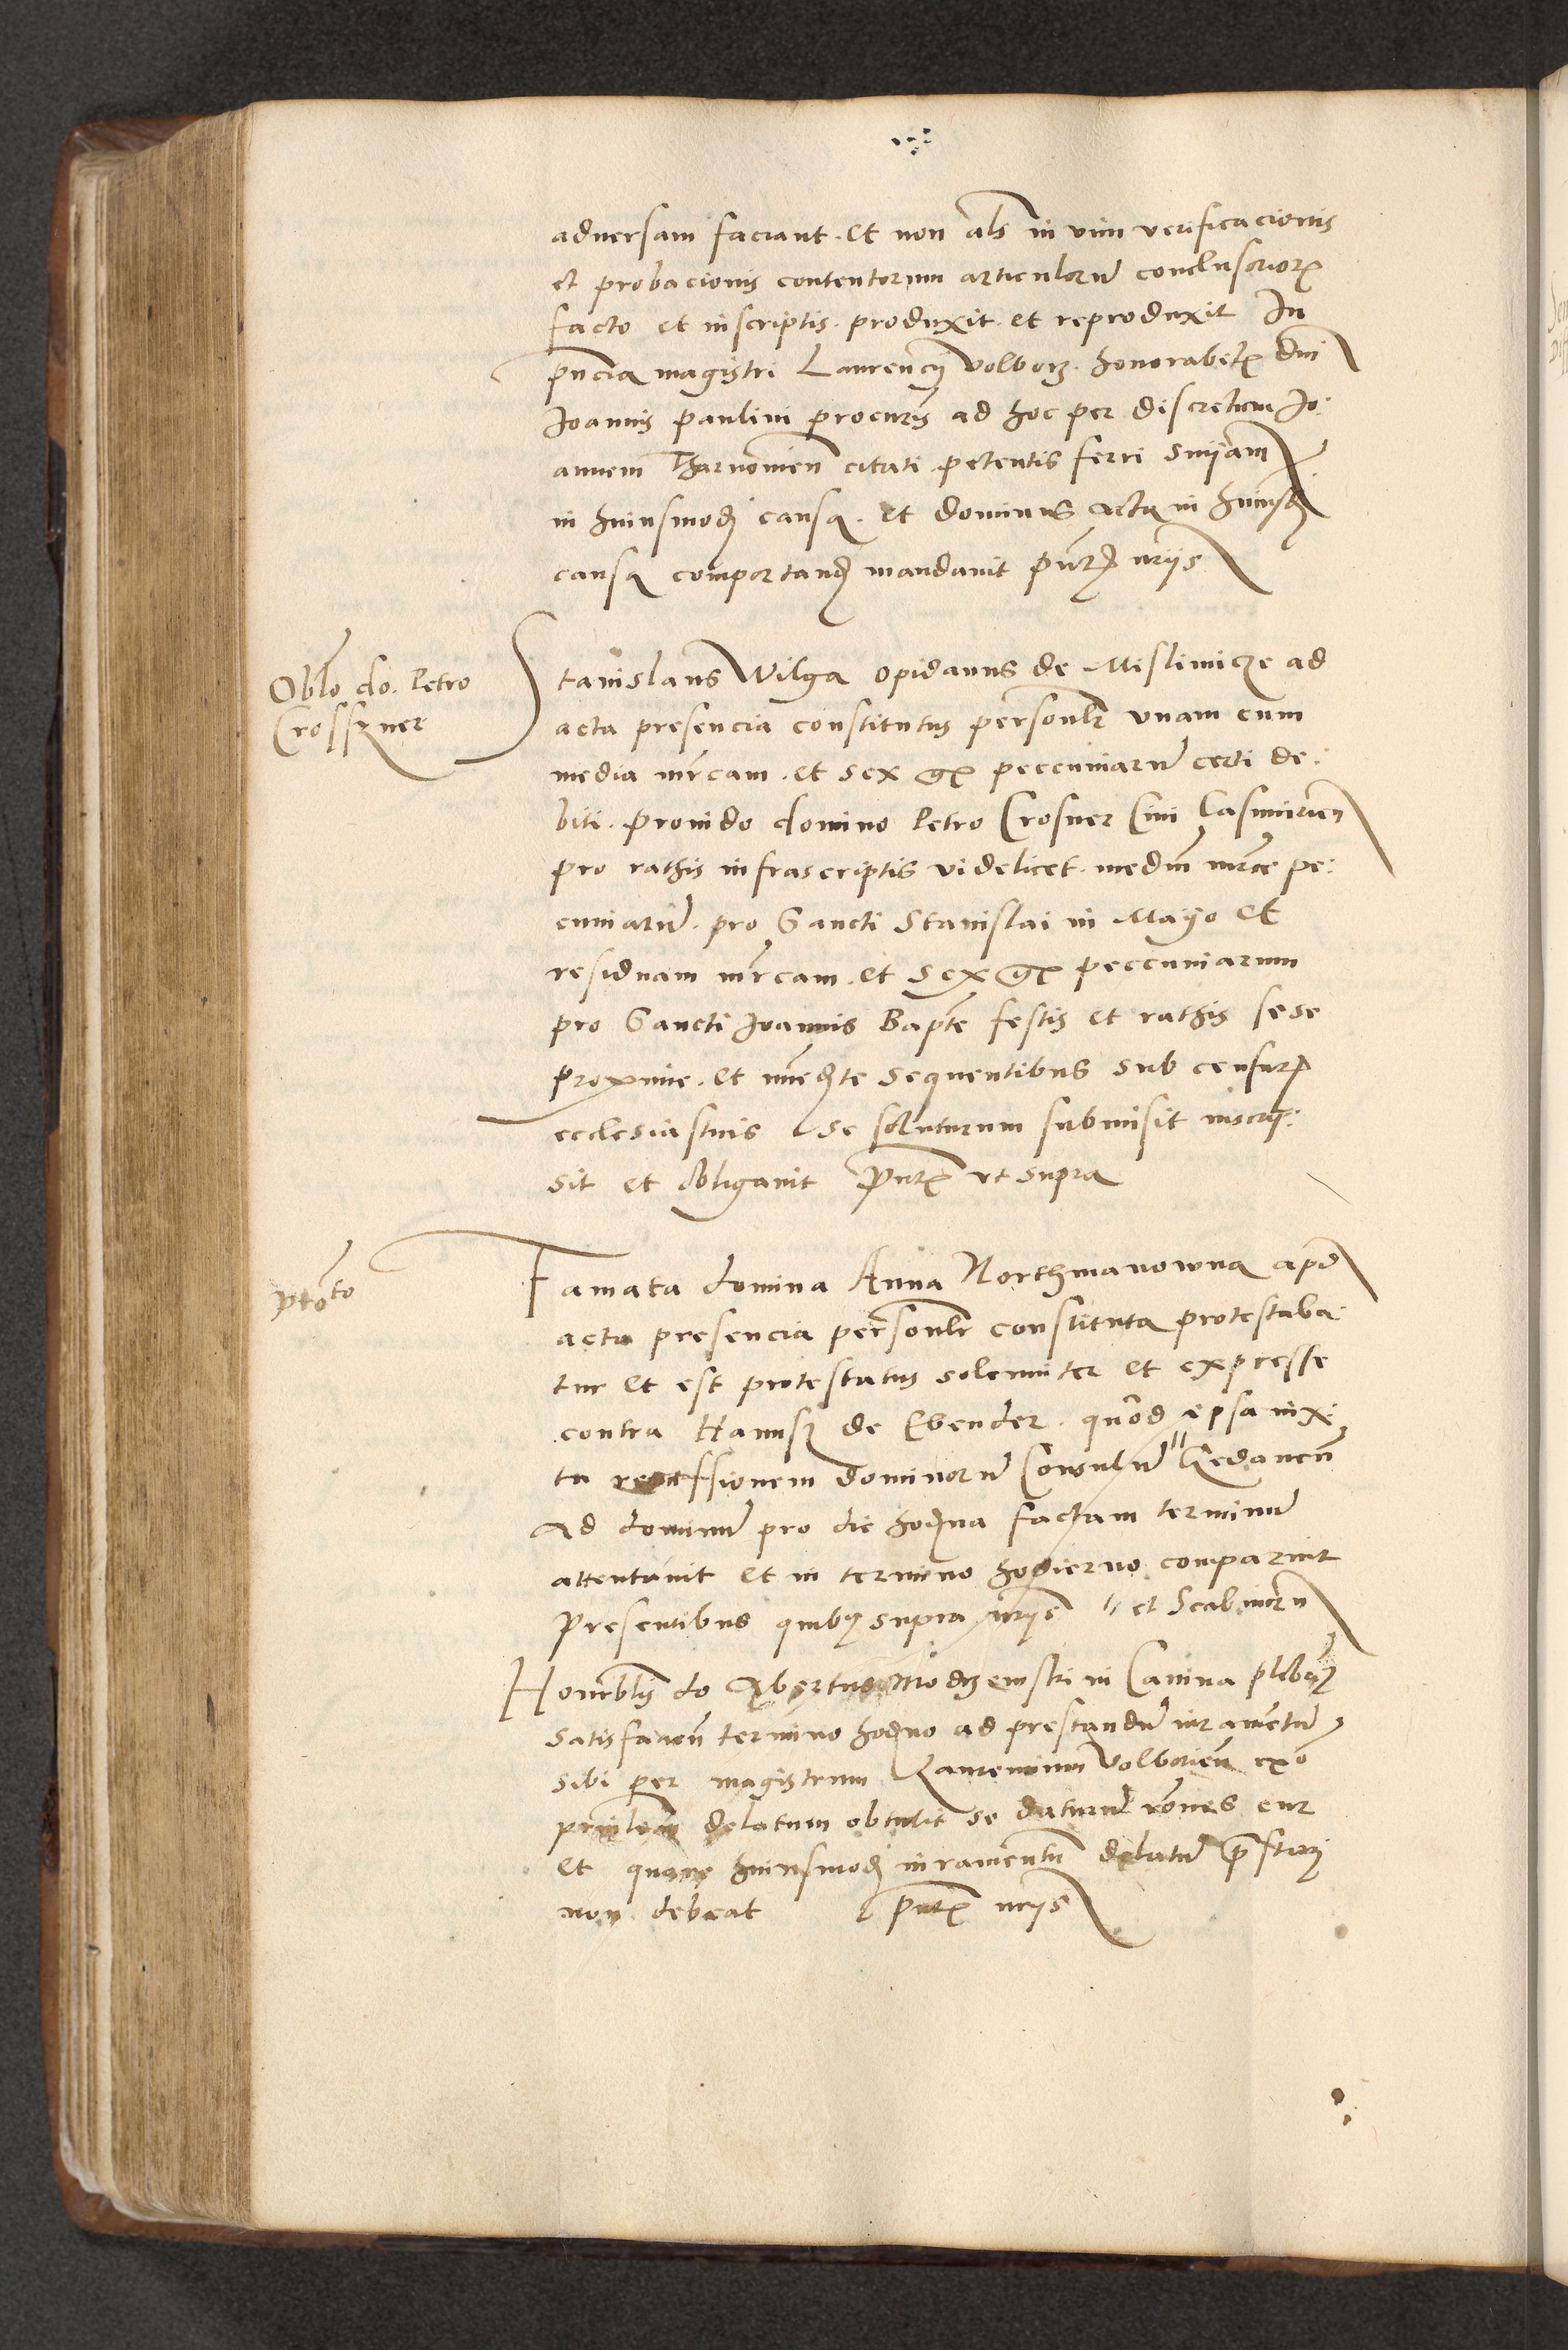 adversam faciant. et non als in vim verificacionis
et probacionis contentorum articulorum conclusorior
facto et inscriptis. produxit. et reproduxit In
pncia magistri Laurencij Volborz. honorabilis dni
Joannis paulini procuris ad hoc per discretum Jo:
annem Tharnowien citati petentis ferri sniam
in huiusmodi causa. et dominus acta in huiusmodi
causa comportand mandavit pntr nriis
Oblo do. Petro
Crosszner
Stanislaus Wilga opidanus de Mislimicze ad
acta presencia constitutus personlr vnam cum
media mrcam. et sex gr peccuniarum certi de:
biti. provido domino Petro Crosner Civi Casimirien
pro rathis infrascriptis videlicet. medm mrce pe:
cuniarum. pro Sancti Stanislai in Mayo et
residuam mrcam. et sex gr peccuniarum
pro Sancti Joannis Bapte festis et rathis sese
proxime. et immedte sequentibus sub censur
ecclesiasticis se soluturum submisit inscrip:
sit et obligavit Pntr vt supra
ptoto
Famata domina Anna Northmanowna apd
acta presencia personlr constituta protestaba:
tur et est protestatus solemniter et expresse
contra Hanusz de Ebender. quod ipsa iux:
ta remissionem dominorum Consulum " Gedanen
Ad dominum pro die hodrna factam terminum
attentavit et in termino hodierno comparuit
Presentibus quibus supra nriis " et Scabinorum
Honorblis do Albertus Modrzewski in Canina plebanus
satisfacien termino hodrno ad prestandum iuramentum
sibi per magistrum Laurencium Volborien ex
delatum obtulit se daturum rones cur
et quare huiusmodi iuramentum delatum prestari
non debeat pntr nriis